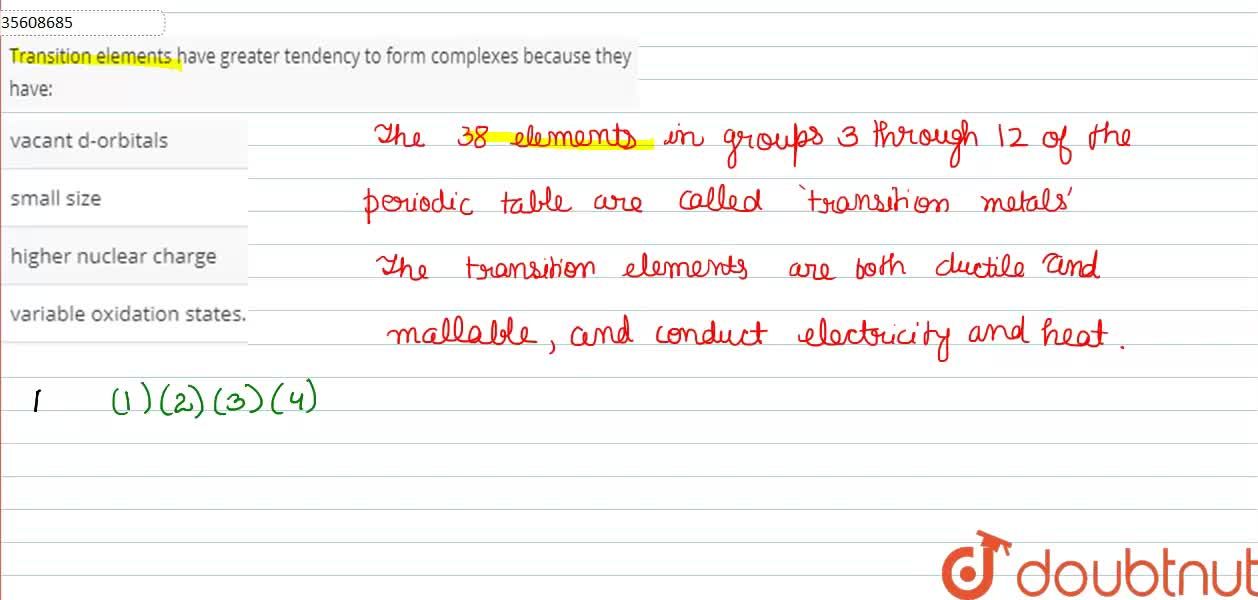 35608685
Transition elements have greater tendency to form complexes because they
have:
vacant d-orbitals
small size
higher nuclear charge
variable oxidation states.
The 38 elements in groups 3 through 12 of the
periodic table are called 'transition metals'
The transition elements are both ductile and
mallable, and conduct electricity and heat.
1 (1) (2) (3) (4)
doubtnut